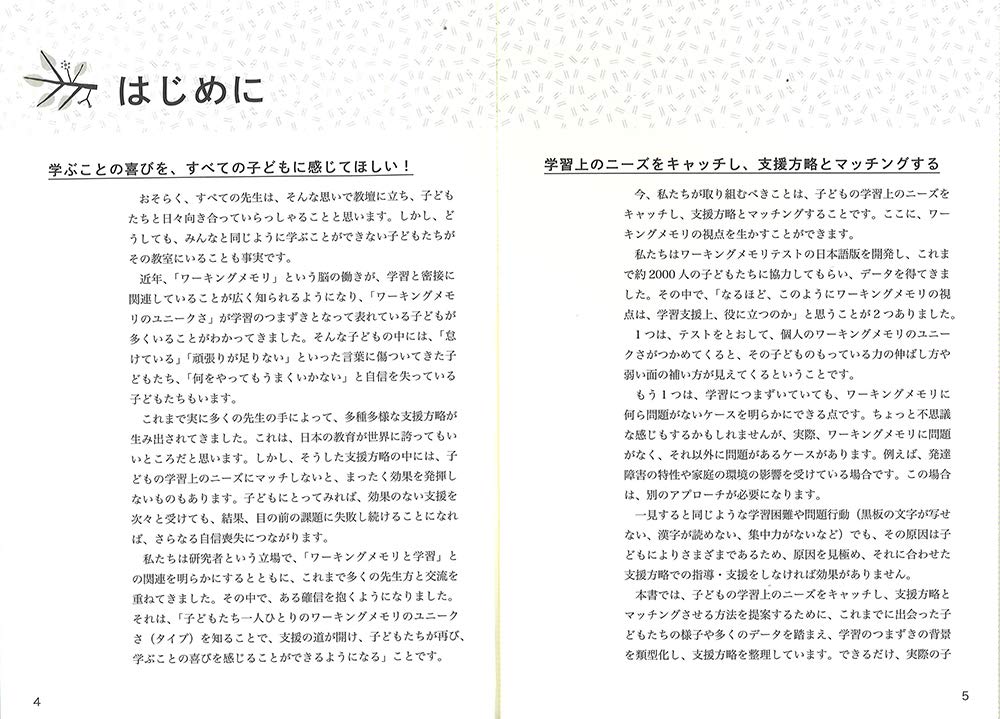 はじめに
学ぶことの喜びを、すべての子どもに感じてほしい！
おそらく、すべての先生は、そんな思いで教壇に立ち、子ども
たちと日々向き合っていらっしゃることと思います。しかし、ど
うしても、みんなと同じように学ぶことができない子どもたちが
その教室にいることも事実です。
近年、「ワーキングメモリ」という脳の働きが、学習と密接に
関連していることが広く知られるようになり、「ワーキングメモ
リのユニークさ」が学習のつまずきとなって表れている子どもが
多くいることがわかってきました。そんな子どもの中には、「怠
けている」「頑張りが足りない」といった言葉に傷ついてきた子
どもたち、「何をやってもうまくいかない」と自信を失っている
子どもたちもいます。
これまで実に多くの先生の手によって、多種多様な支援方略が
生み出されてきました。これは、日本の教育が世界に誇ってもい
いところだと思います。しかし、そうした支援方略の中には、子
どもの学習上のニーズにマッチしないと、まったく効果を発揮し
ないものもあります。子どもにとってみれば、効果のない支援を
次々と受けても、結果、目の前の課題に失敗し続けることになれ
ば、さらなる自信喪失につながります。
私たちは研究者という立場で、「ワーキングメモリと学習」と
の関連を明らかにするとともに、これまで多くの先生方と交流を
重ねてきました。その中で、ある確信を抱くようになりました。
それは、「子どもたち一人ひとりのワーキングメモリのユニーク
さ（タイプ）を知ることで、支援の道が開け、子どもたちが再び、
学ぶことの喜びを感じることができるようになる」ことです。
4
学習上のニーズをキャッチし、支援方略とマッチングする
今、私たちが取り組むべきことは、子どもの学習上のニーズを
キャッチし、支援方略とマッチングすることです。ここに、ワー
キングメモリの視点を生かすことができます。
私たちはワーキングメモリテストの日本語版を開発し、これま
で約2000人の子どもたちに協力してもらい、データを得てきま
した。その中で、「なるほど、このようにワーキングメモリの視
点は、学習支援上、役に立つのか」と思うことが2つありました。
1つは、テストをとおして、個人のワーキングメモリのユニー
クさがつかめてくると、その子どものもっている力の伸ばし方や
弱い面の補い方が見えてくるということです。
もう1つは、学習につまずいていても、ワーキングメモリに
何ら問題がないケースを明らかにできる点です。ちょっと不思議
な感じもするかもしれませんが、実際、ワーキングメモリに問題
がなく、それ以外に問題があるケースがあります。例えば、発達
障害の特性や家庭の環境の影響を受けている場合です。この場合
は、別のアプローチが必要になります。
一見すると同じような学習困難や問題行動（黒板の文字が写せ
ない、漢字が読めない、集中力がないなど）でも、その原因は子
どもによりさまざまであるため、原因を見極め、それに合わせた
支援方略での指導・支援をしなければ効果がありません。
本書では、子どもの学習上のニーズをキャッチし、支援方略と
マッチングさせる方法を提案するために、これまでに出会った子
どもたちの様子や多くのデータを踏まえ、学習のつまずきの背景
を類型化し、支援方略を整理しています。できるだけ、実際の子
5